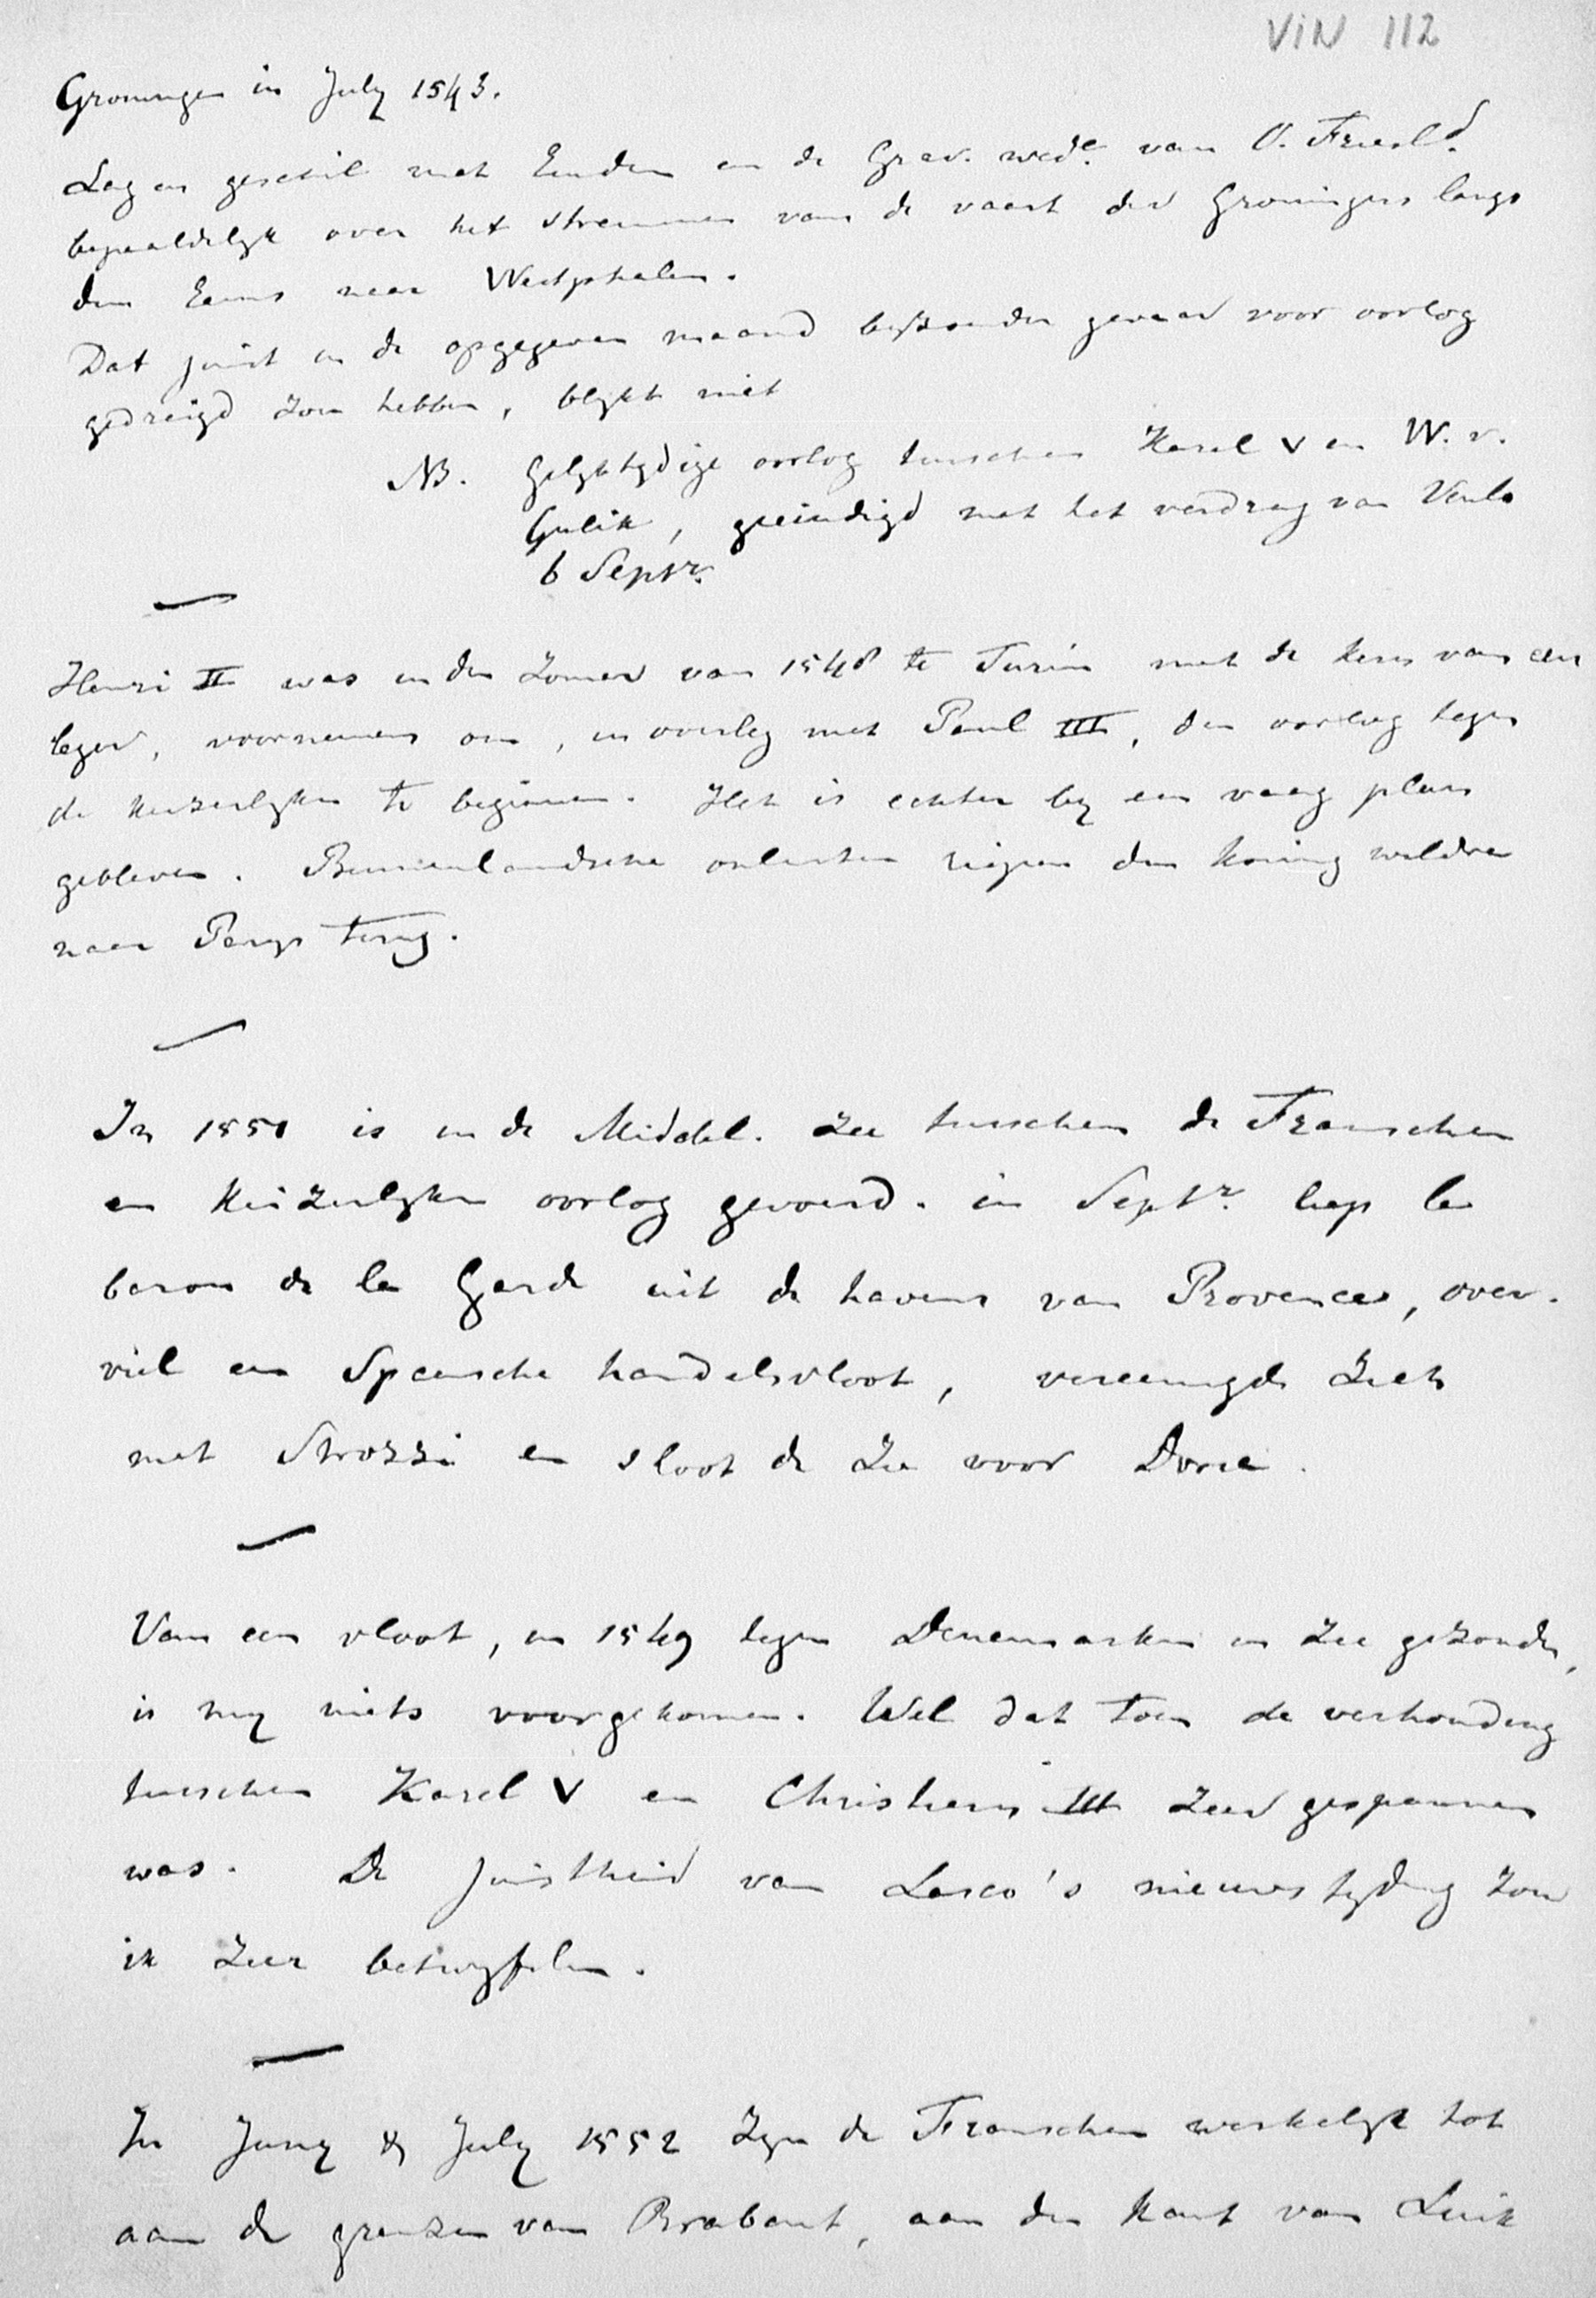 VIN 112
Groningen in July 1543.
Lag in geschil met Emden en de Grav. wede. van O. Friesld.
bepaaldelyk over het stremmen van de vaart der Groningers langs
den Eems naar Westphalen.
Dat juist in de opgegeven maand byzonder gevaar voor oorlog
gedreigd zou hebben, blykt niet
NB. Gelyktydige oorlog tusschen Karel V en W. v.
Gulik, geeindigd met het verdrag van Venlo
6 Septr.
Henri II was in den Zomer van 1548 te Turin met de kern van een
leger, voornemens om, in overleg met Paul III, den oorlog tegen
de keizerlyken te beginnen. Het is echter by een vaag plan
gebleven. Binnenlandsche onlusten riepen den Koning weldra
naar Parys terug.
In 1551 is in de Middel. Zee tusschen de Franschen
en Keizerlyken oorlog gevoerd. in Septr. liep le
baron de la Garde uit de havens van Provence, over-
viel een Spaansche handelsvloot, vereenigde zich
met Strozzi en sloot de Zee voor Doria.
Van een vloot, in 1549 tegen Denemarken in Zee gezonden,
is my niets voorgekomen. Wel dat toen de verhouding
tusschen Karel V en Christiern III zeer gespannen
was. De juistheid van Lasco's nieuwstyding zou
ik zeer betwyfelen.
In Juny & July 1552 Zyn de Franschen werkelyk tot
aan de grenzen van Brabant, aan den kant van Luik